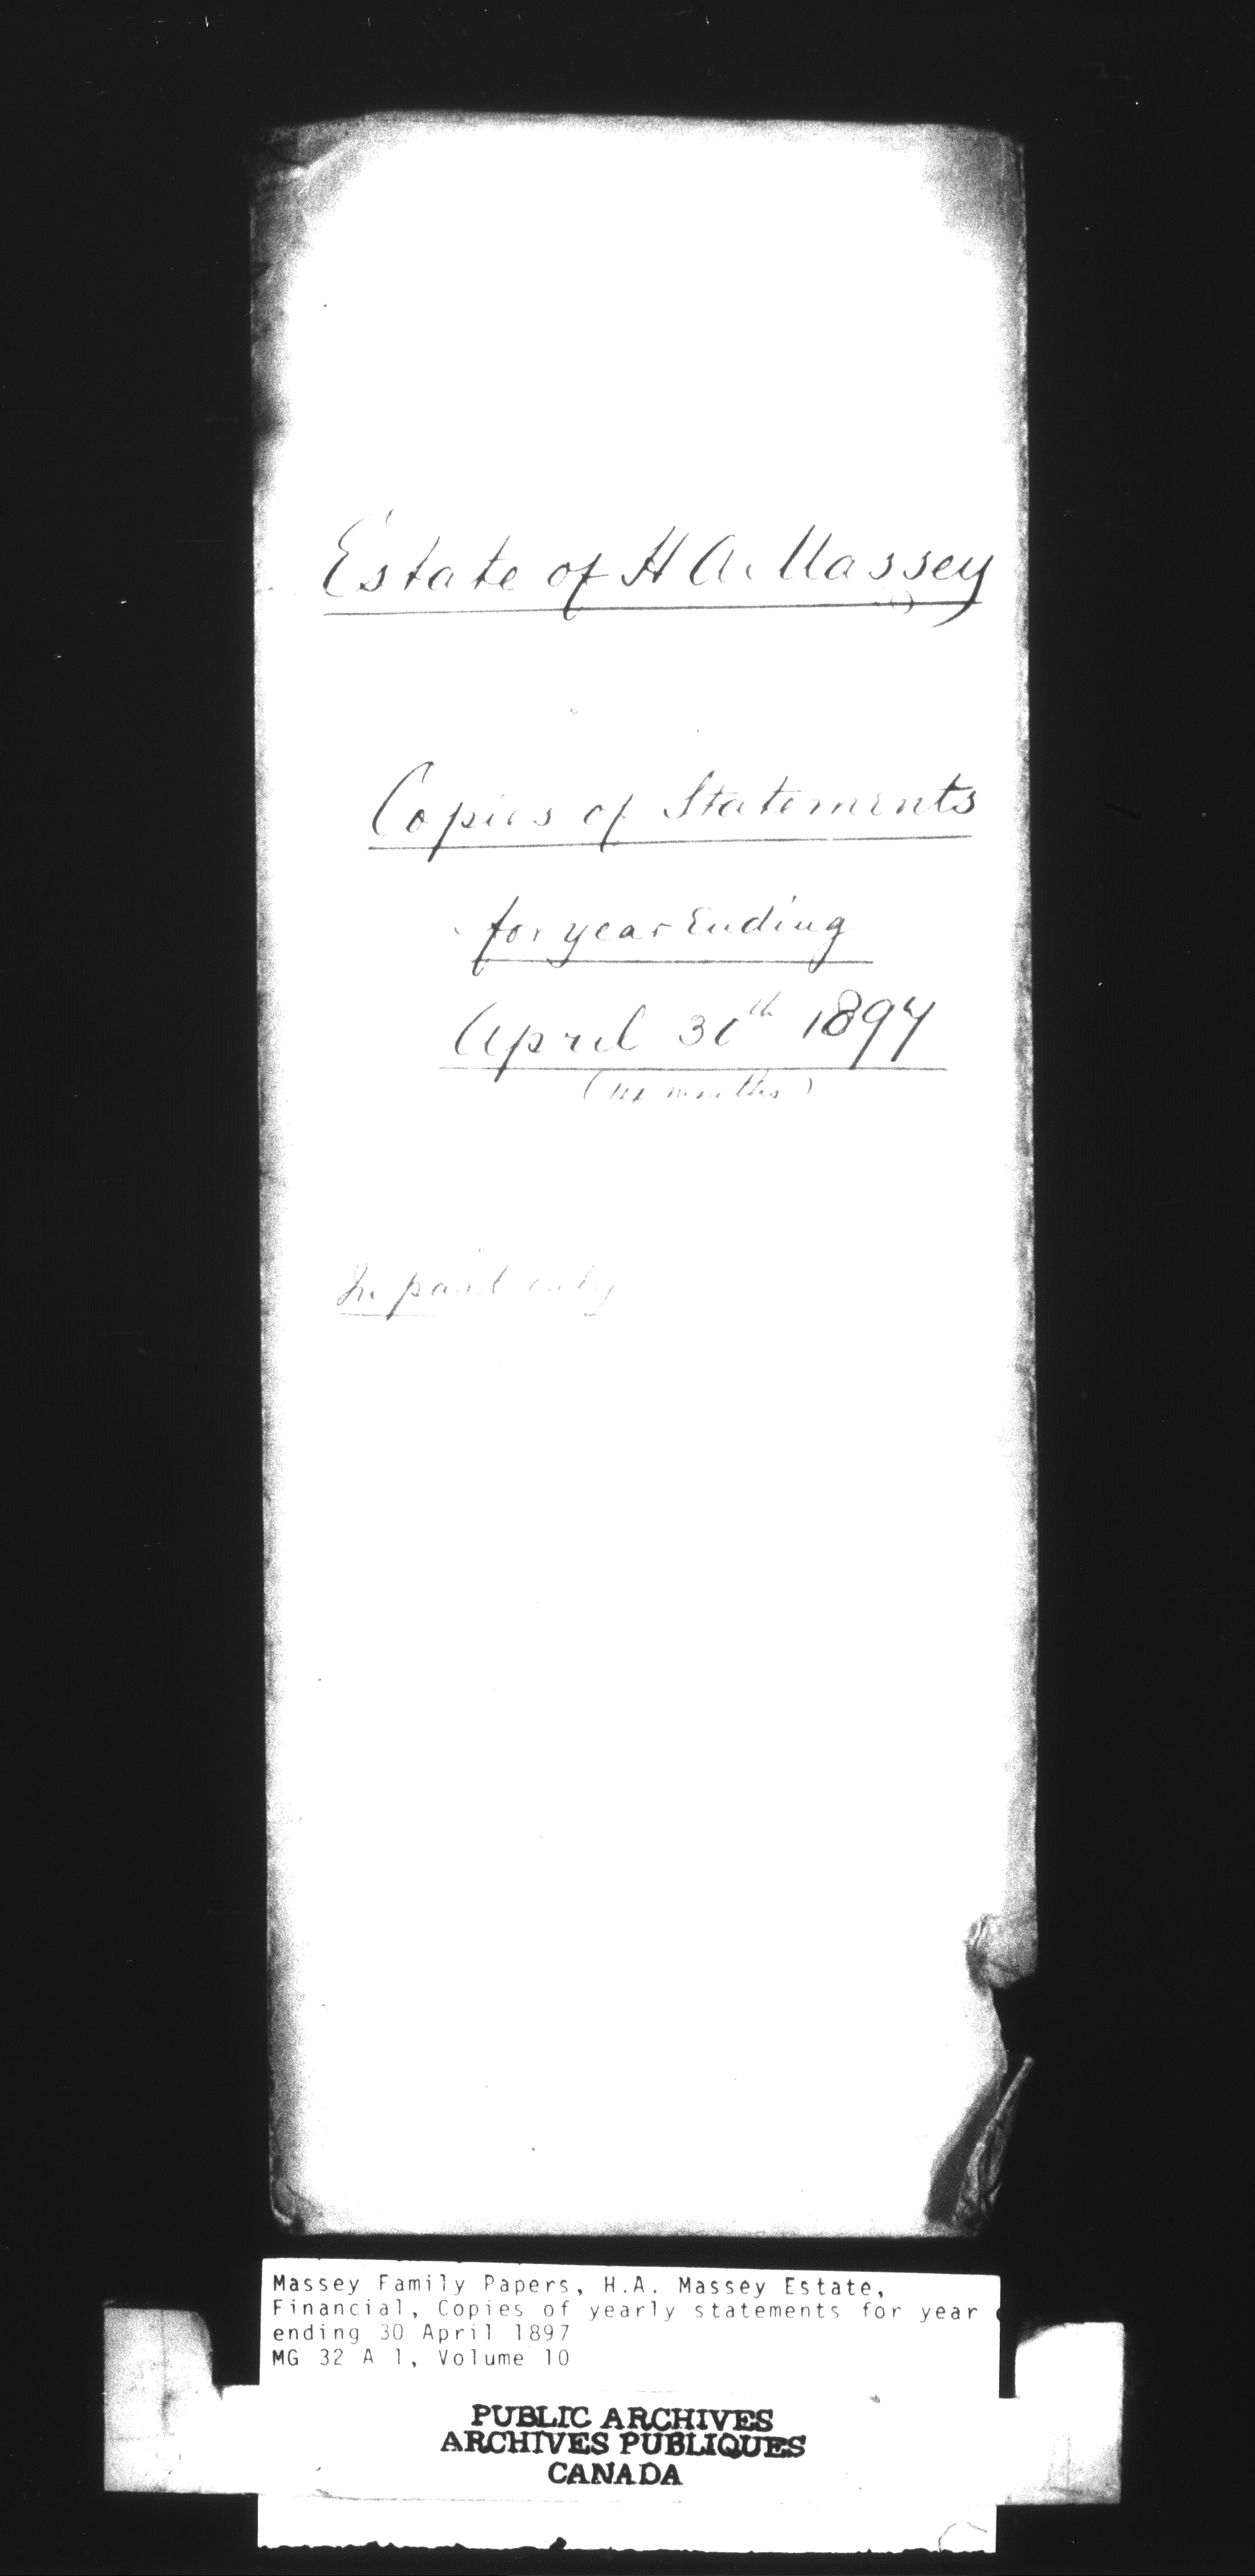 Estate of H A. Massey
Copies of Statements
for year Ending
April 30th 1897
(six months)
In part only
Massey Family Papers, H.A. Massey Estate,
Financial, Copies of yearly statements for year
ending 30 April 1897
MG 32 A 1, Volume 10
PUBLIC ARCHIVES
ARCHIVES PUBLIQUES
CANADA